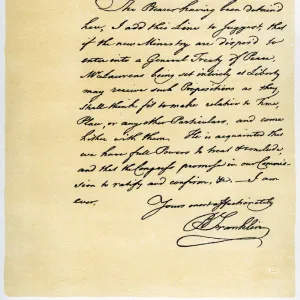 The Bearer having been detained
here, I add this Line to suggest, that
if the new Ministry are disposed to
enter into a General Treaty of Peace,
Mr Laurens being set intirely at Liberty
may receive such Propositions as they
shall think fit to make relative to Time,
Place, or any other Particulars, and come
hither with them. He is acquainted that
we have full Powers to treat & conclude,
and that the Congress promise in our Commis-
sion to ratify and confirm, &c. — I am
ever,
Yours most affectionately
B Franklin